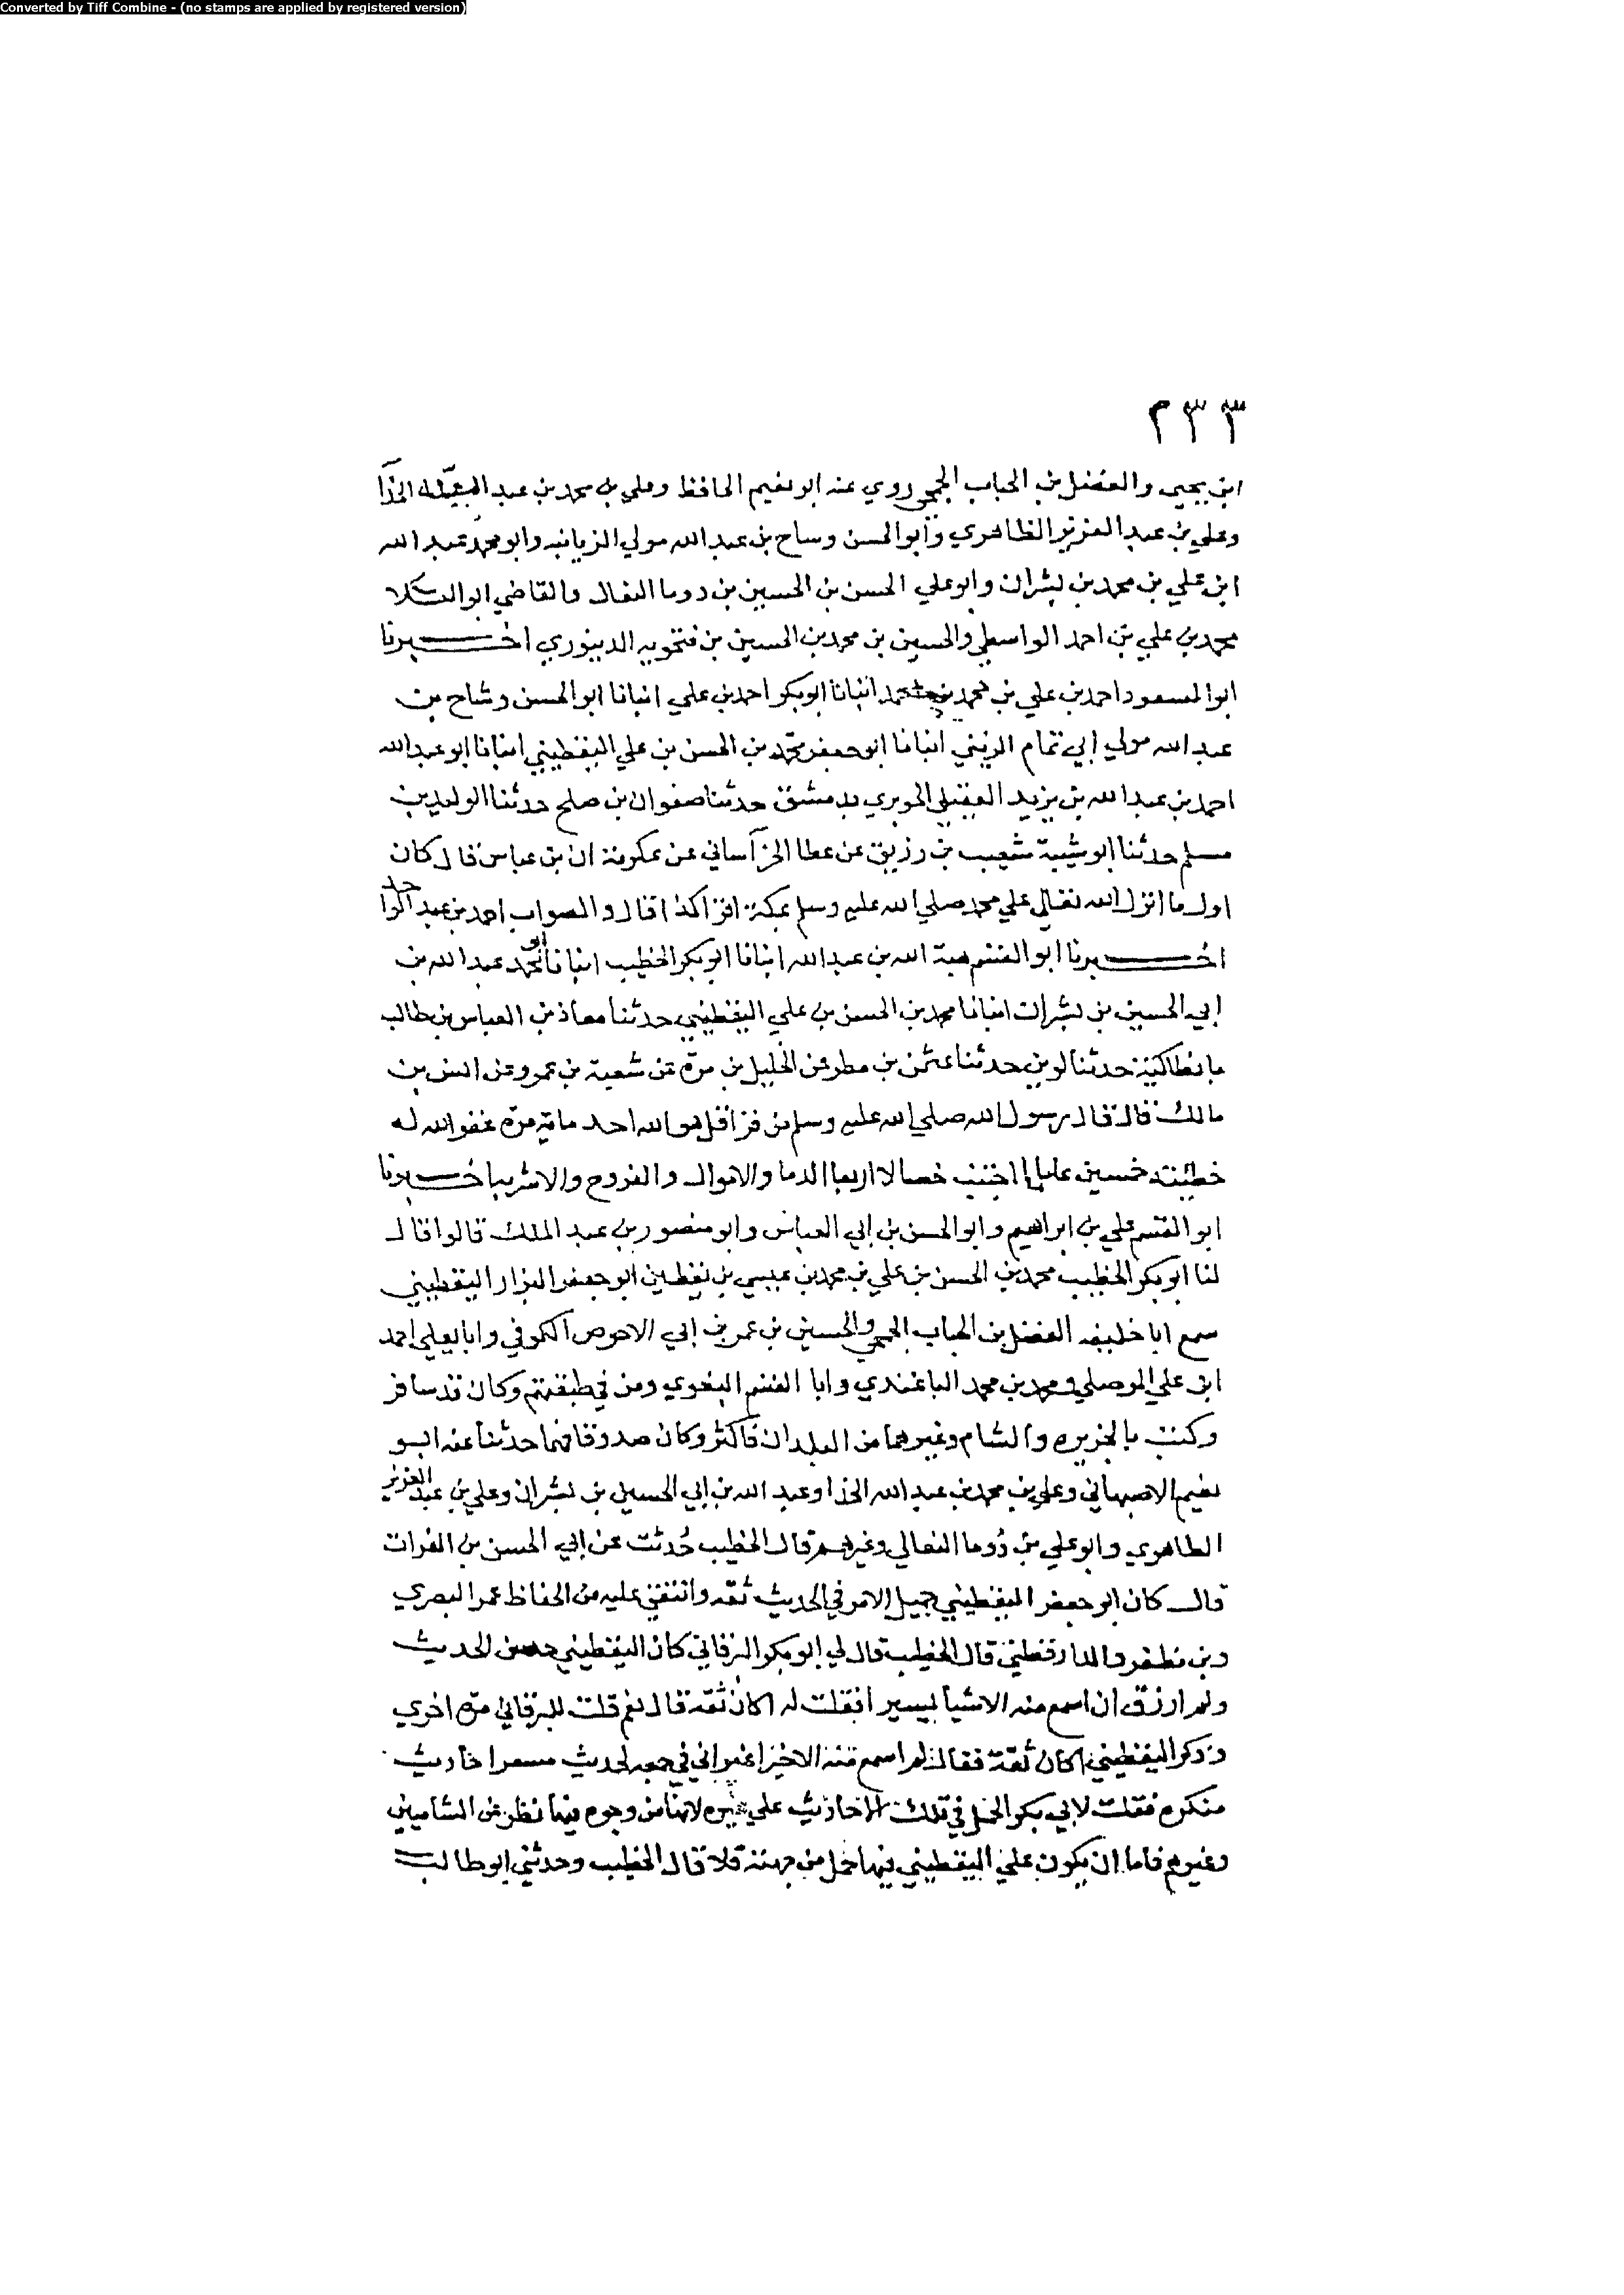 Converted by Tiff Combine - (no stamps are applied by registered version)
٢٣٣
ابن يحيى والفضل بن الحباب الجمحي روي عنه ابو نعيم الحافظ وعلي بن محمد بن عبد الله الحذآ
وعلي بن عبد العزيز الظاهري وابو الحسن وساح بن عبد الله مولي الزيانبه وابو محمد عبد الله
ابن علي بن محمد بن بشران وابو علي الحسن بن الحسين بن دوما النعال والقاضي ابو العلا
محمد بن علي بن احمد الواسطي والحسين بن محمد بن الحسين بن فنجويه الدينوري اخبرنا
ابو المسعود احمد بن علي بن محمد انبانا ابو بكر احمد بن علي انبانا ابو الحسن وشاح بن
عبد الله مولي ابي تمام الزينبي انبانا ابو جعفر محمد بن الحسن بن علي اليقطيني انبانا ابو عبد الله
احمد بن عبد الله بن يزيد العقيلي الجوبري بدمشق حدثنا صفوان بن صلح حدثنا الوليد بن
مسلم حدثنا ابو شيبة شعيب بن رزيق عن عطا الخرآساني عن عكرمة ان بن عباس قال كان
اول ما انزل الله تعالى علي محمد صلي الله عليه وسلم بمكة اقرا كذا قال والصواب احمد بن عبد الواحد
اخبرنا ابو القسم هبة الله بن عبد الله انبانا ابو بكر الخطيب انبانا ابو محمد عبد الله بن
ابي الحسين بن بشران انبانا محمد بن الحسن بن علي اليقطيني حدثنا معاذ بن العباس بن طالب
بانطاكية حدثنا لوين حدثنا عثمن بن مطر عن الخليل بن مرة عن شعبة بن عمرو عن انس بن
مالك قال قال رسول الله صلي الله عليه وسلم من قرا قل هو الله احد ماية مرة غفر الله له
خطيئته خمسين عاما ما اجتنب خصالا اربعا الدما والاموال والفروج والاشربة اخبرنا
ابو القسم علي بن ابراهيم وابو الحسن بن ابي العباس وابو منصور بن عبد الملك قالوا قال
لنا ابو بكر الخطيب محمد بن الحسن بن علي بن محمد بن عيسي بن يقطين ابو جعفر البزار اليقطيني
سمع ابا خليفه الفضل بن الحباب الجمحي والحسين بن عمر بن ابي الاحوص الكوفي وابا يعلي احمد
ابن علي الموصلي ومحمد بن محمد الباغندي وابا القسم البغوي ومن في طبقتهم وكان قد سافر
وكتب بالجزيره والشام وغيرهما من البلدان فاكثر وكان صدوقا فهما حدثنا عنه ابو
نعيم الاصبهاني وعلي بن محمد بن عبد الله الحذا وعبد الله بن ابي الحسين بن بشران وعلي بن عبد العزيز
الطاهري وابو علي بن دُوما النعالي وغيرهم قال الخطيب حُدثت عن ابي الحسن بن الفرات
قال كان ابو جعفر اليقطيني جميل الامر في الحديث ثقه وانتقي عليه من الحفاظ عمر البصري
وبن مظفر والدارقطني قال الخطيب قال لي ابو بكر البرقاني كان اليقطيني حسن الحديث
ولم ارزق ان اسمع منه الا شيأ يسيرا فقلت له اكان ثقة قال نعم قلت للبرقاني مرة اخري
وذكر اليقطيني اكان ثقة فقال لم اسمع منه الا خيرا غير اني في جمعه لحديث مسعر احاديث
منكره فقلت لابي بكر الحمل في تلك الاحاديث علي غيره لانها من وجوه فيها نظر عن الشاميين
وغيرهم فاما ان يكون علي اليقطيني فيها حمل من جهته فلا قال الخطيب وحدثني ابو طالب